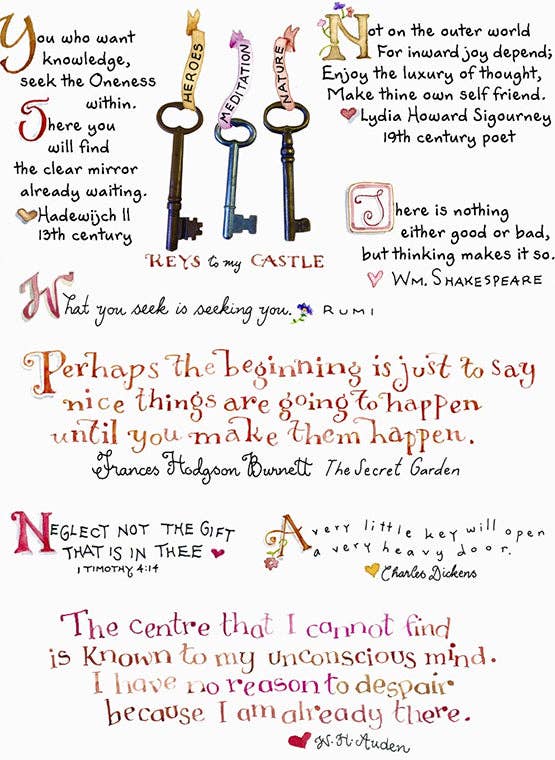 You who want
knowledge,
seek the Oneness
within.
There you
will find
the clear mirror
already waiting.
Hadewijch II
13th century
HEROES
MEDITATION
NATURE
KEYS to my CASTLE
Not on the outer world
For inward joy depend;
Enjoy the luxury of thought,
Make thine own self friend.
Lydia Howard Sigourney
19th century poet
There is nothing
either good or bad,
but thinking makes it so.
WM. SHAKESPEARE
What you seek is seeking you. RUMI
Perhaps the beginning is just to say
nice things are going to happen
until you make them happen.
Frances Hodgson Burnett The Secret Garden
NEGLECT NOT THE GIFT
THAT IS IN THEE
1 TIMOTHY 4:14
A very little key will open
a very heavy door.
Charles Dickens
The centre that I cannot find
is Known to my unconscious mind.
I have no reason to despair
because I am already there.
W. H. Auden